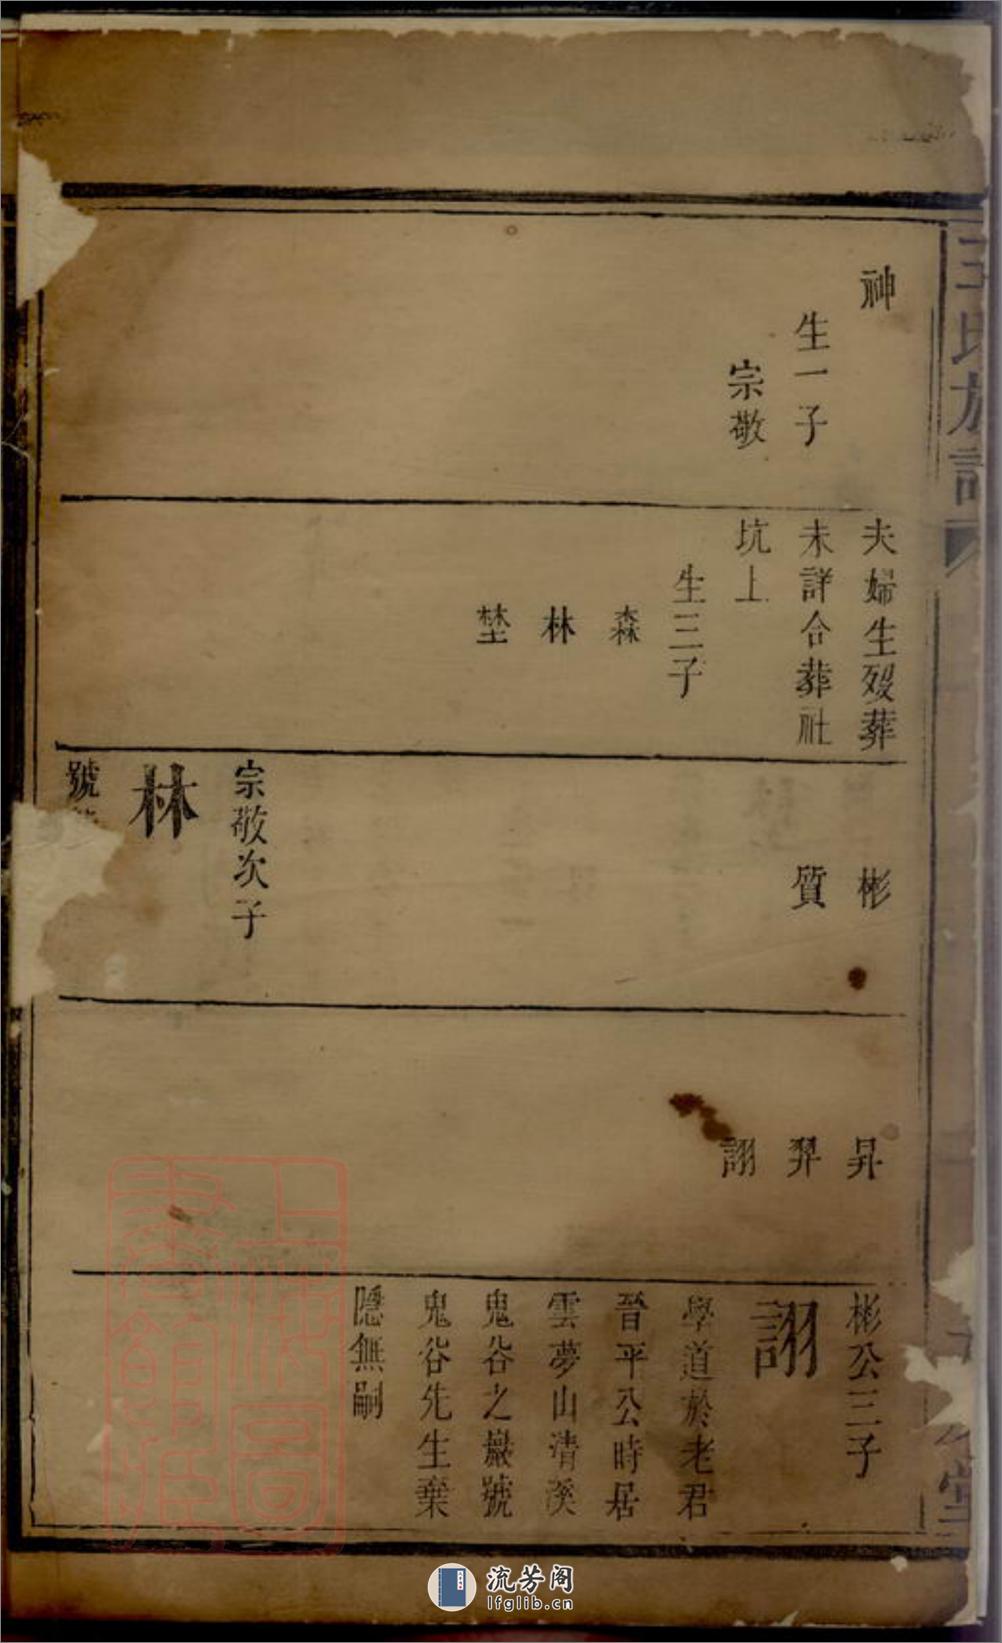 王氏族譜
神
生一子
宗敬
夫婦生歿葬
未詳合葬社
坑上
生三子
森
林
埜
彬
質
宗敬次子
林
號
昇
羿
詡
彬公三子
詡
學道於老君
晉平公時居
雲夢山清溪
鬼谷之巖號
鬼谷先生棄
隱無嗣
堂
上海圖書館藏
流芳阁
lfglib.cn